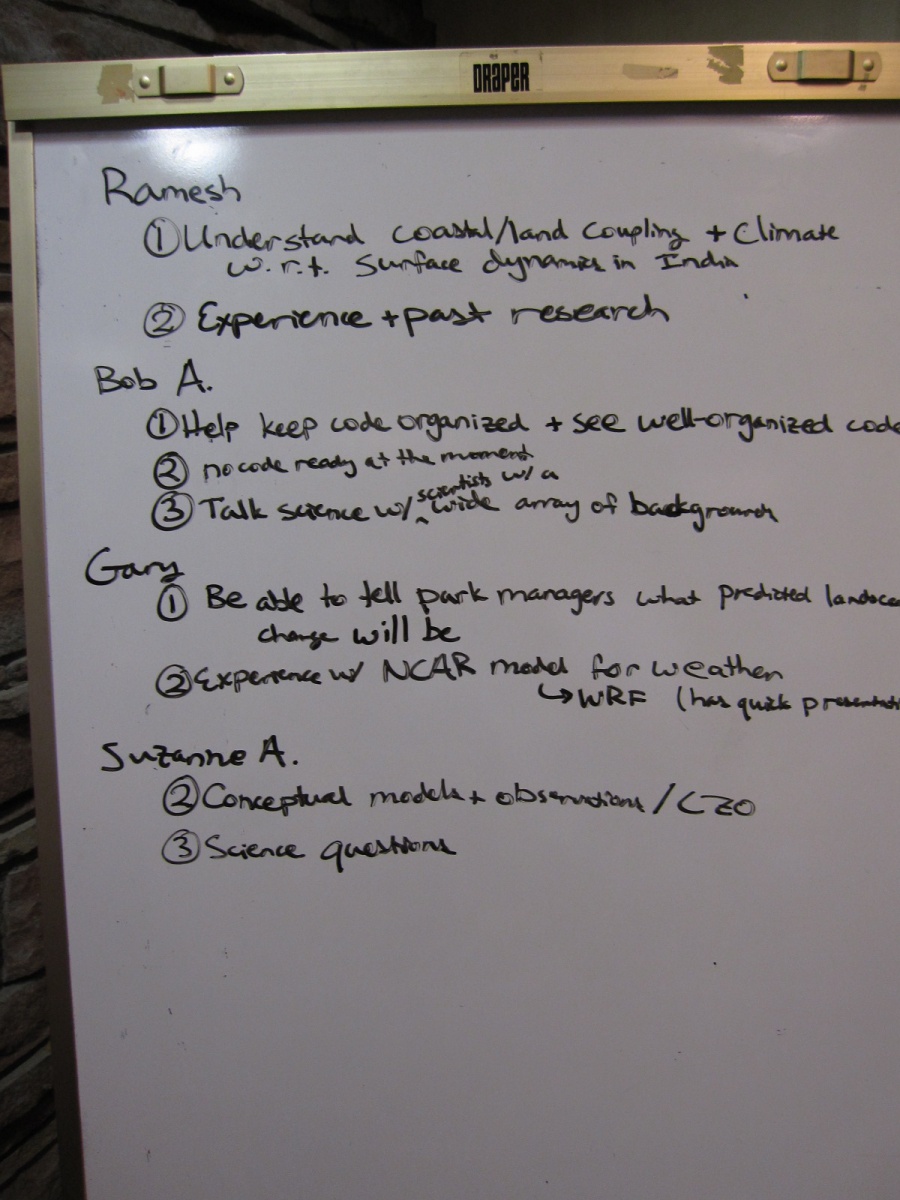 DRAPER
Ramesh
① Understand coastal/land coupling + Climate
w.r.t. Surface dynamics in India
② Experience + past research
Bob A.
① Help keep code organized + see well-organized code
② no code ready at the moment
scientists w/ a
③ Talk science w/ ^ wide array of backgrounds
Gary
① Be able to tell park managers what predicted
change will be
② Experience w/ NCAR model for weather
↳ WRF (has quick
Suzanne A.
② Conceptual models + observations / CZO
③ Science questions